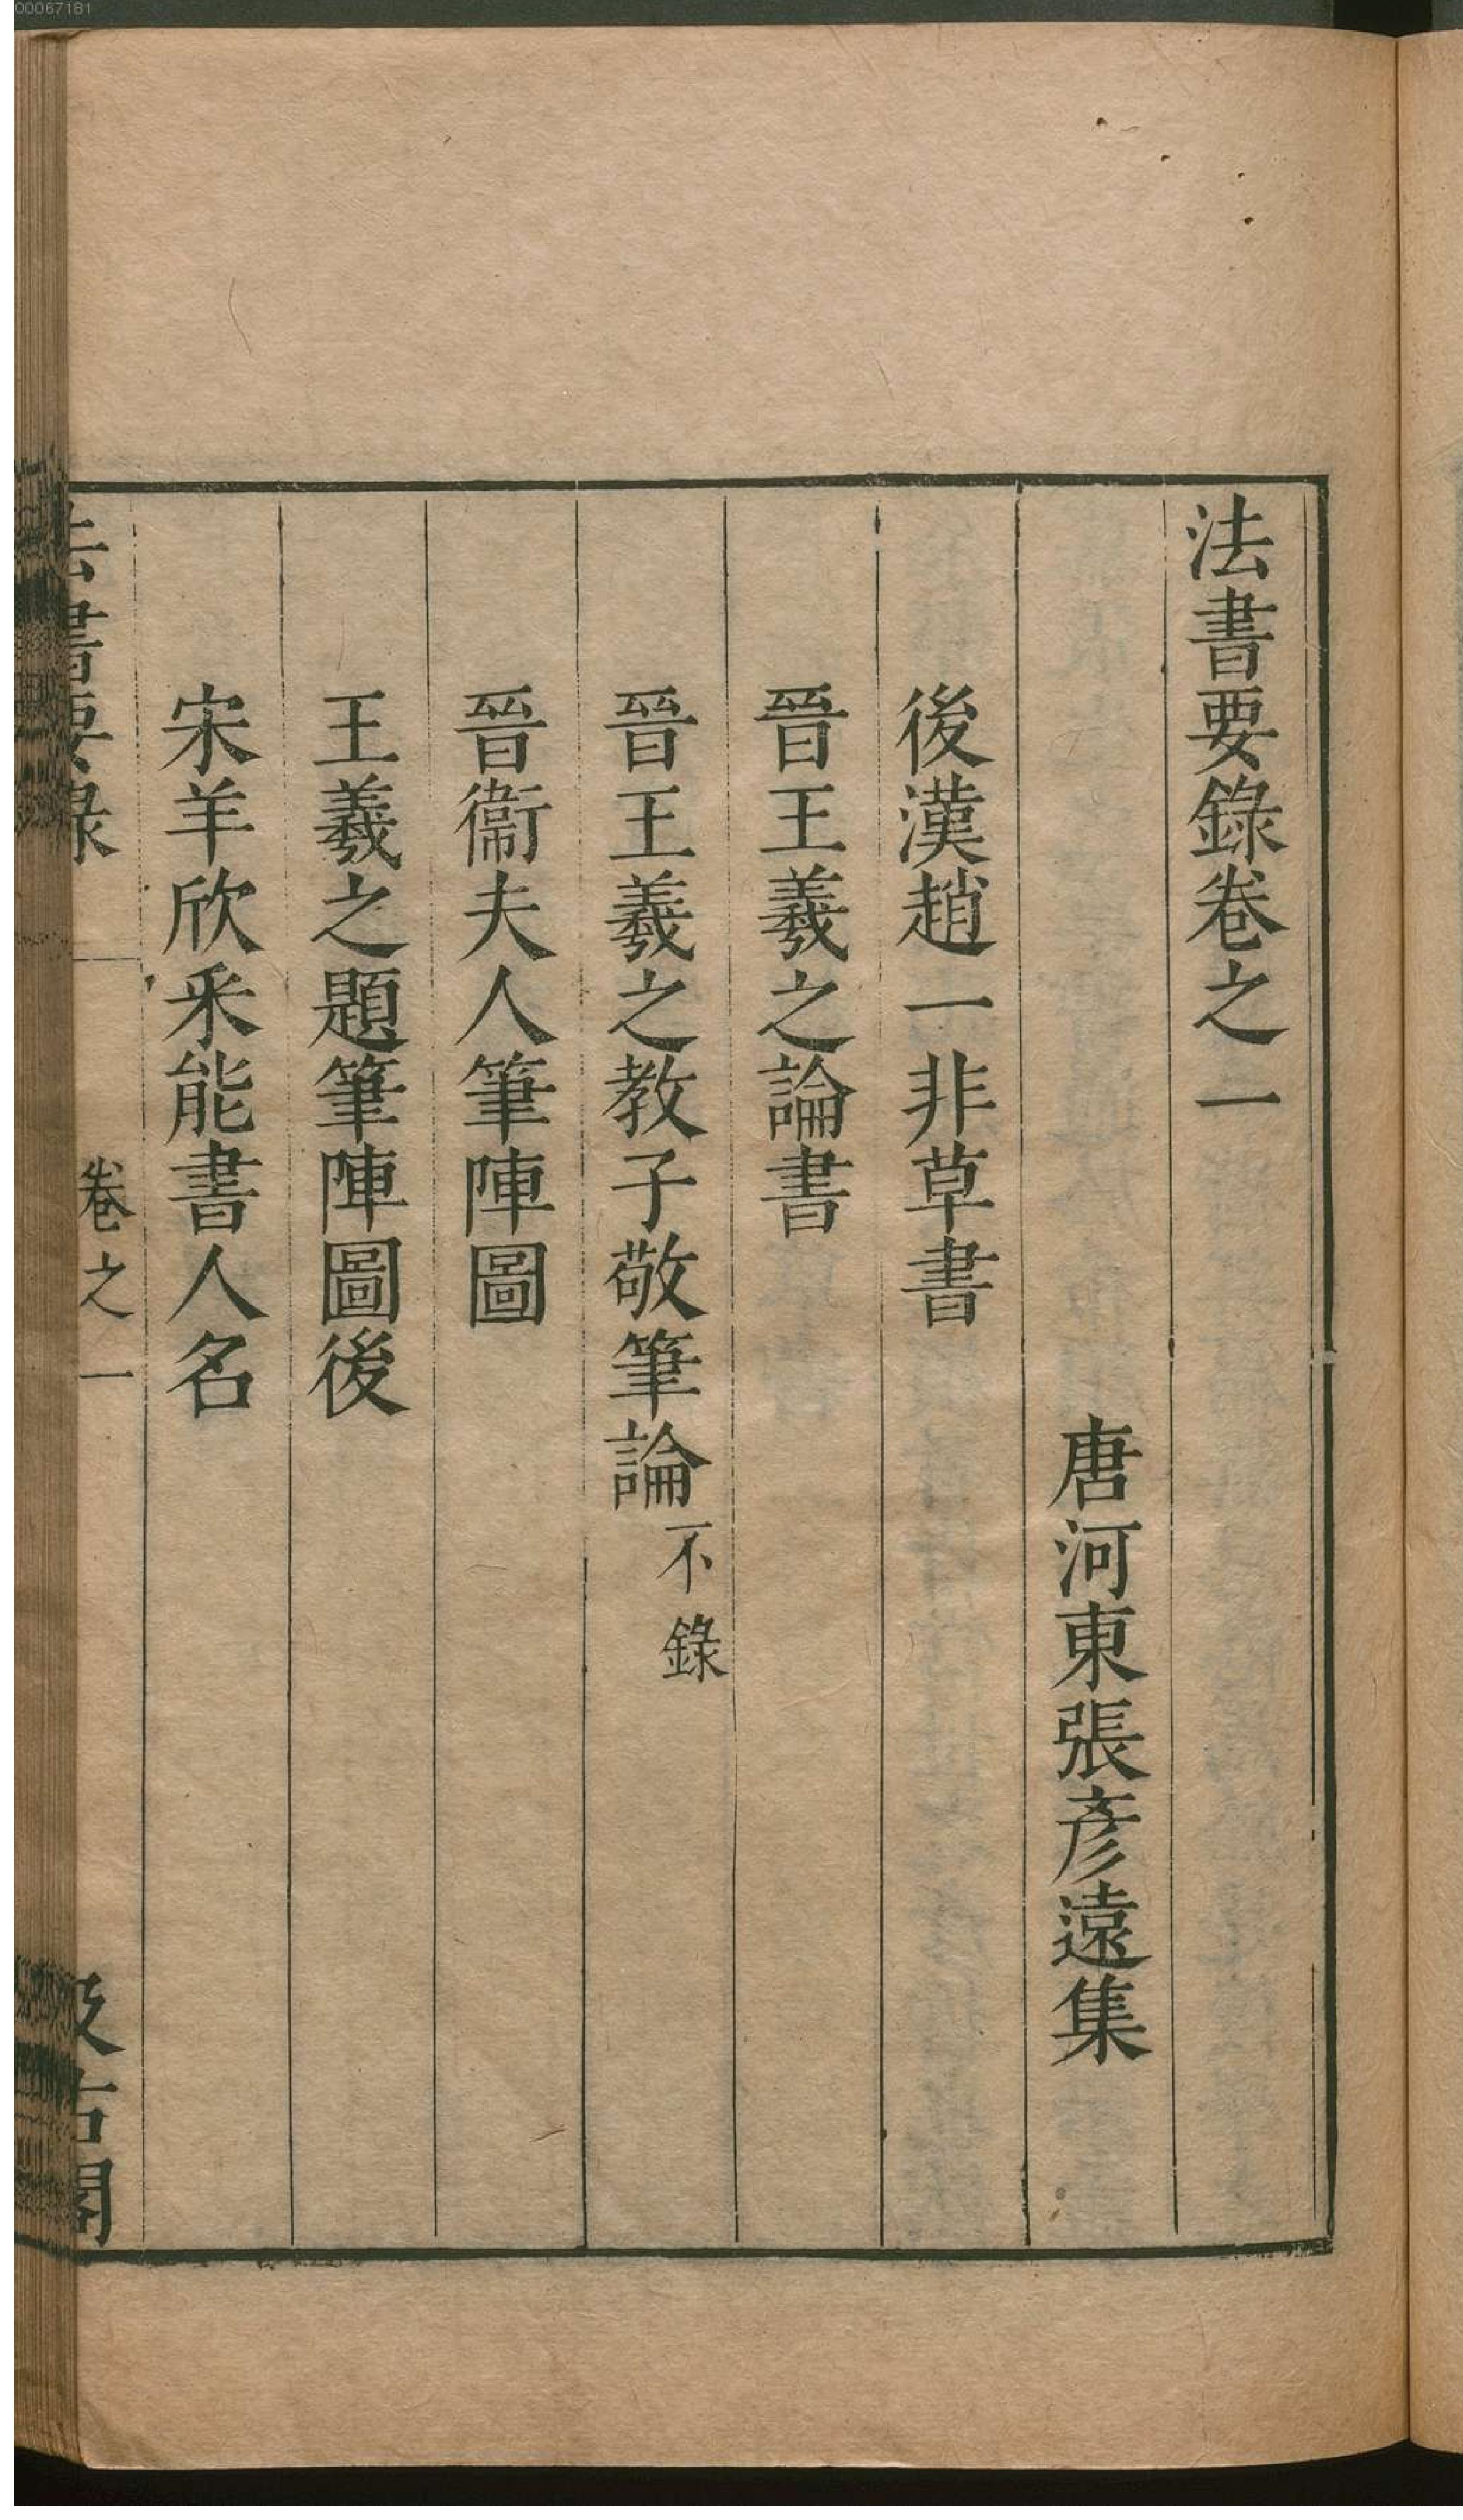 00067181
法書要錄卷之一
唐河東張彥遠集
後漢趙一非草書
晉王羲之論書
晉王羲之教子敬筆論不錄
晉衞夫人筆陣圖
王羲之題筆陣圖後
宋羊欣采能書人名
法書要錄
卷之一
汲古閣